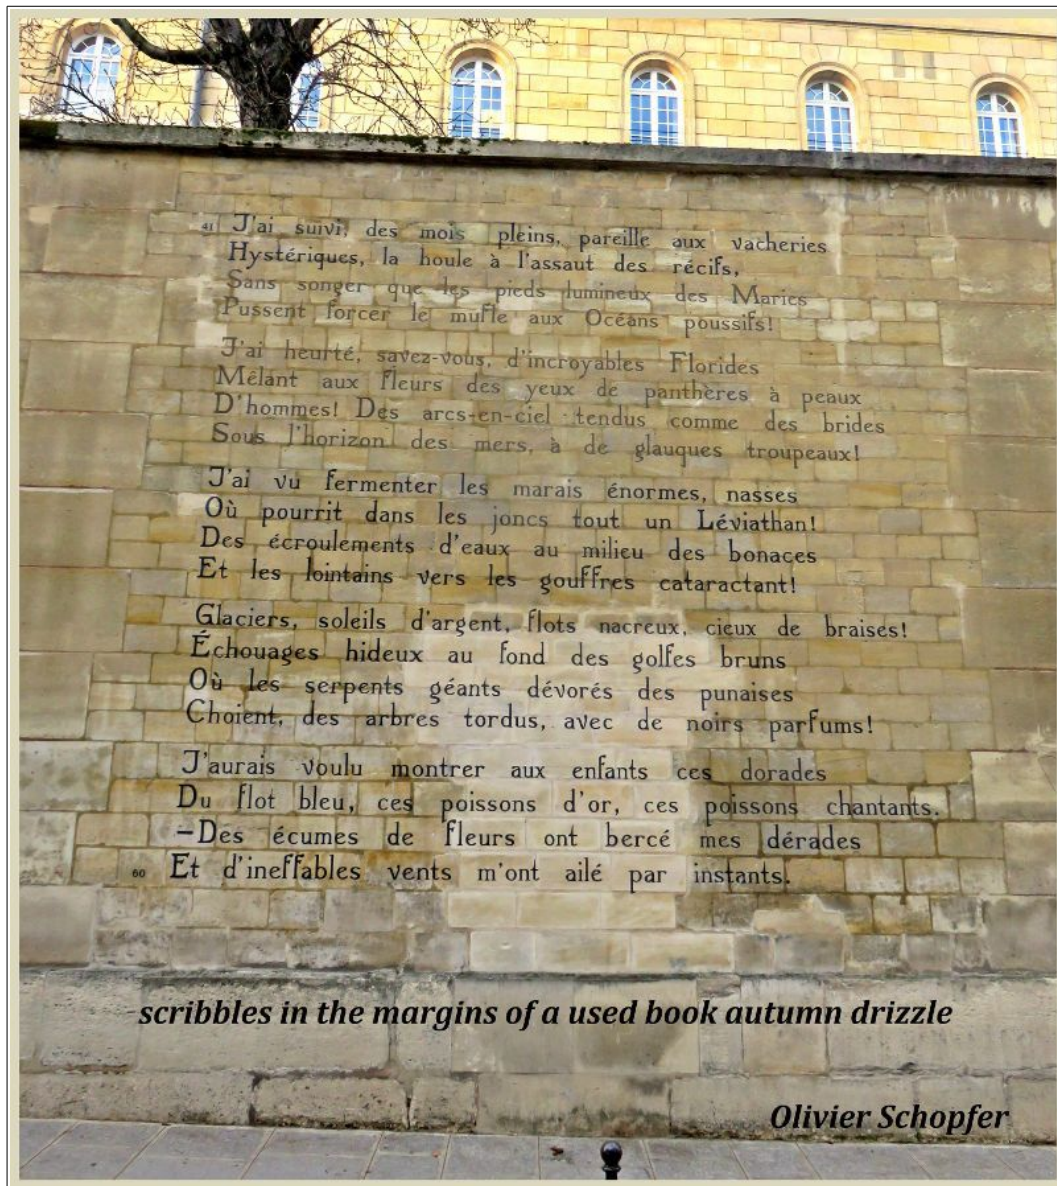 41 J'ai suivi, des mois pleins, pareille aux vacheries
Hystériques, la houle à l'assaut des récifs,
Sans songer que les pieds lumineux des Maries
Pussent forcer le mufle aux Océans poussifs!
J'ai heurté, savez-vous, d'incroyables Florides
Mêlant aux fleurs des yeux de panthères à peaux
D'hommes! Des arcs-en-ciel tendus comme des brides
Sous l'horizon des mers, à de glauques troupeaux!
J'ai vu fermenter les marais énormes, nasses
Où pourrit dans les joncs tout un Léviathan!
Des écroulements d'eaux au milieu des bonaces
Et les lointains vers les gouffres cataractant!
Glaciers, soleils d'argent, flots nacreux, cieux de braises!
Échouages hideux au fond des golfes bruns
Où les serpents géants dévorés des punaises
Choient, des arbres tordus, avec de noirs parfums!
J'aurais voulu montrer aux enfants ces dorades
Du flot bleu, ces poissons d'or, ces poissons chantants.
–Des écumes de fleurs ont bercé mes dérades
60 Et d'ineffables vents m'ont ailé par instants.
scribbles in the margins of a used book autumn drizzle
Olivier Schopfer